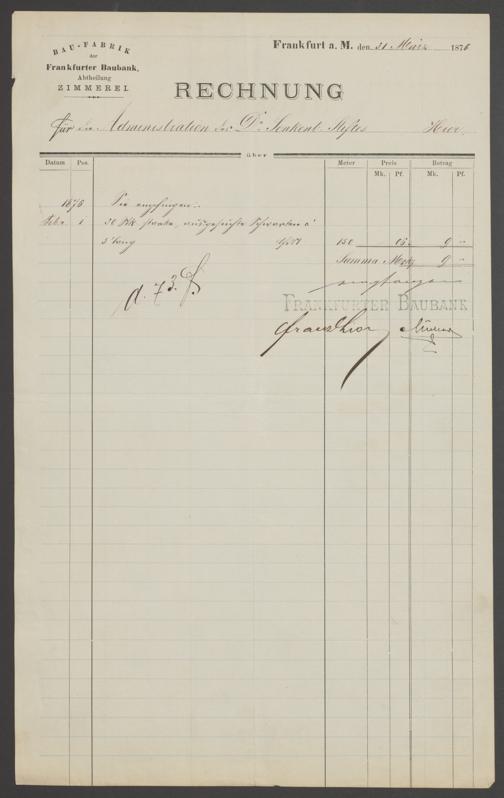 BAU-FABRIK
der
Frankfurter Baubank,
Abtheilung
ZIMMEREI.
Frankfurt a. M. den 31 März 1876
RECHNUNG
Für die Administration des Dr Senkenb. Stiftes Hier.
über
Datum Pos. Meter Preis Betrag
Mk. Pf. Mk. Pf.
1876 Sie empfingen:
1 30 Stk starke, ausgesuchte Schwarten à
5 lang 150 05 9 "
Summa Mark 9 "
empfangen
FRANKFURTER BAUBANK